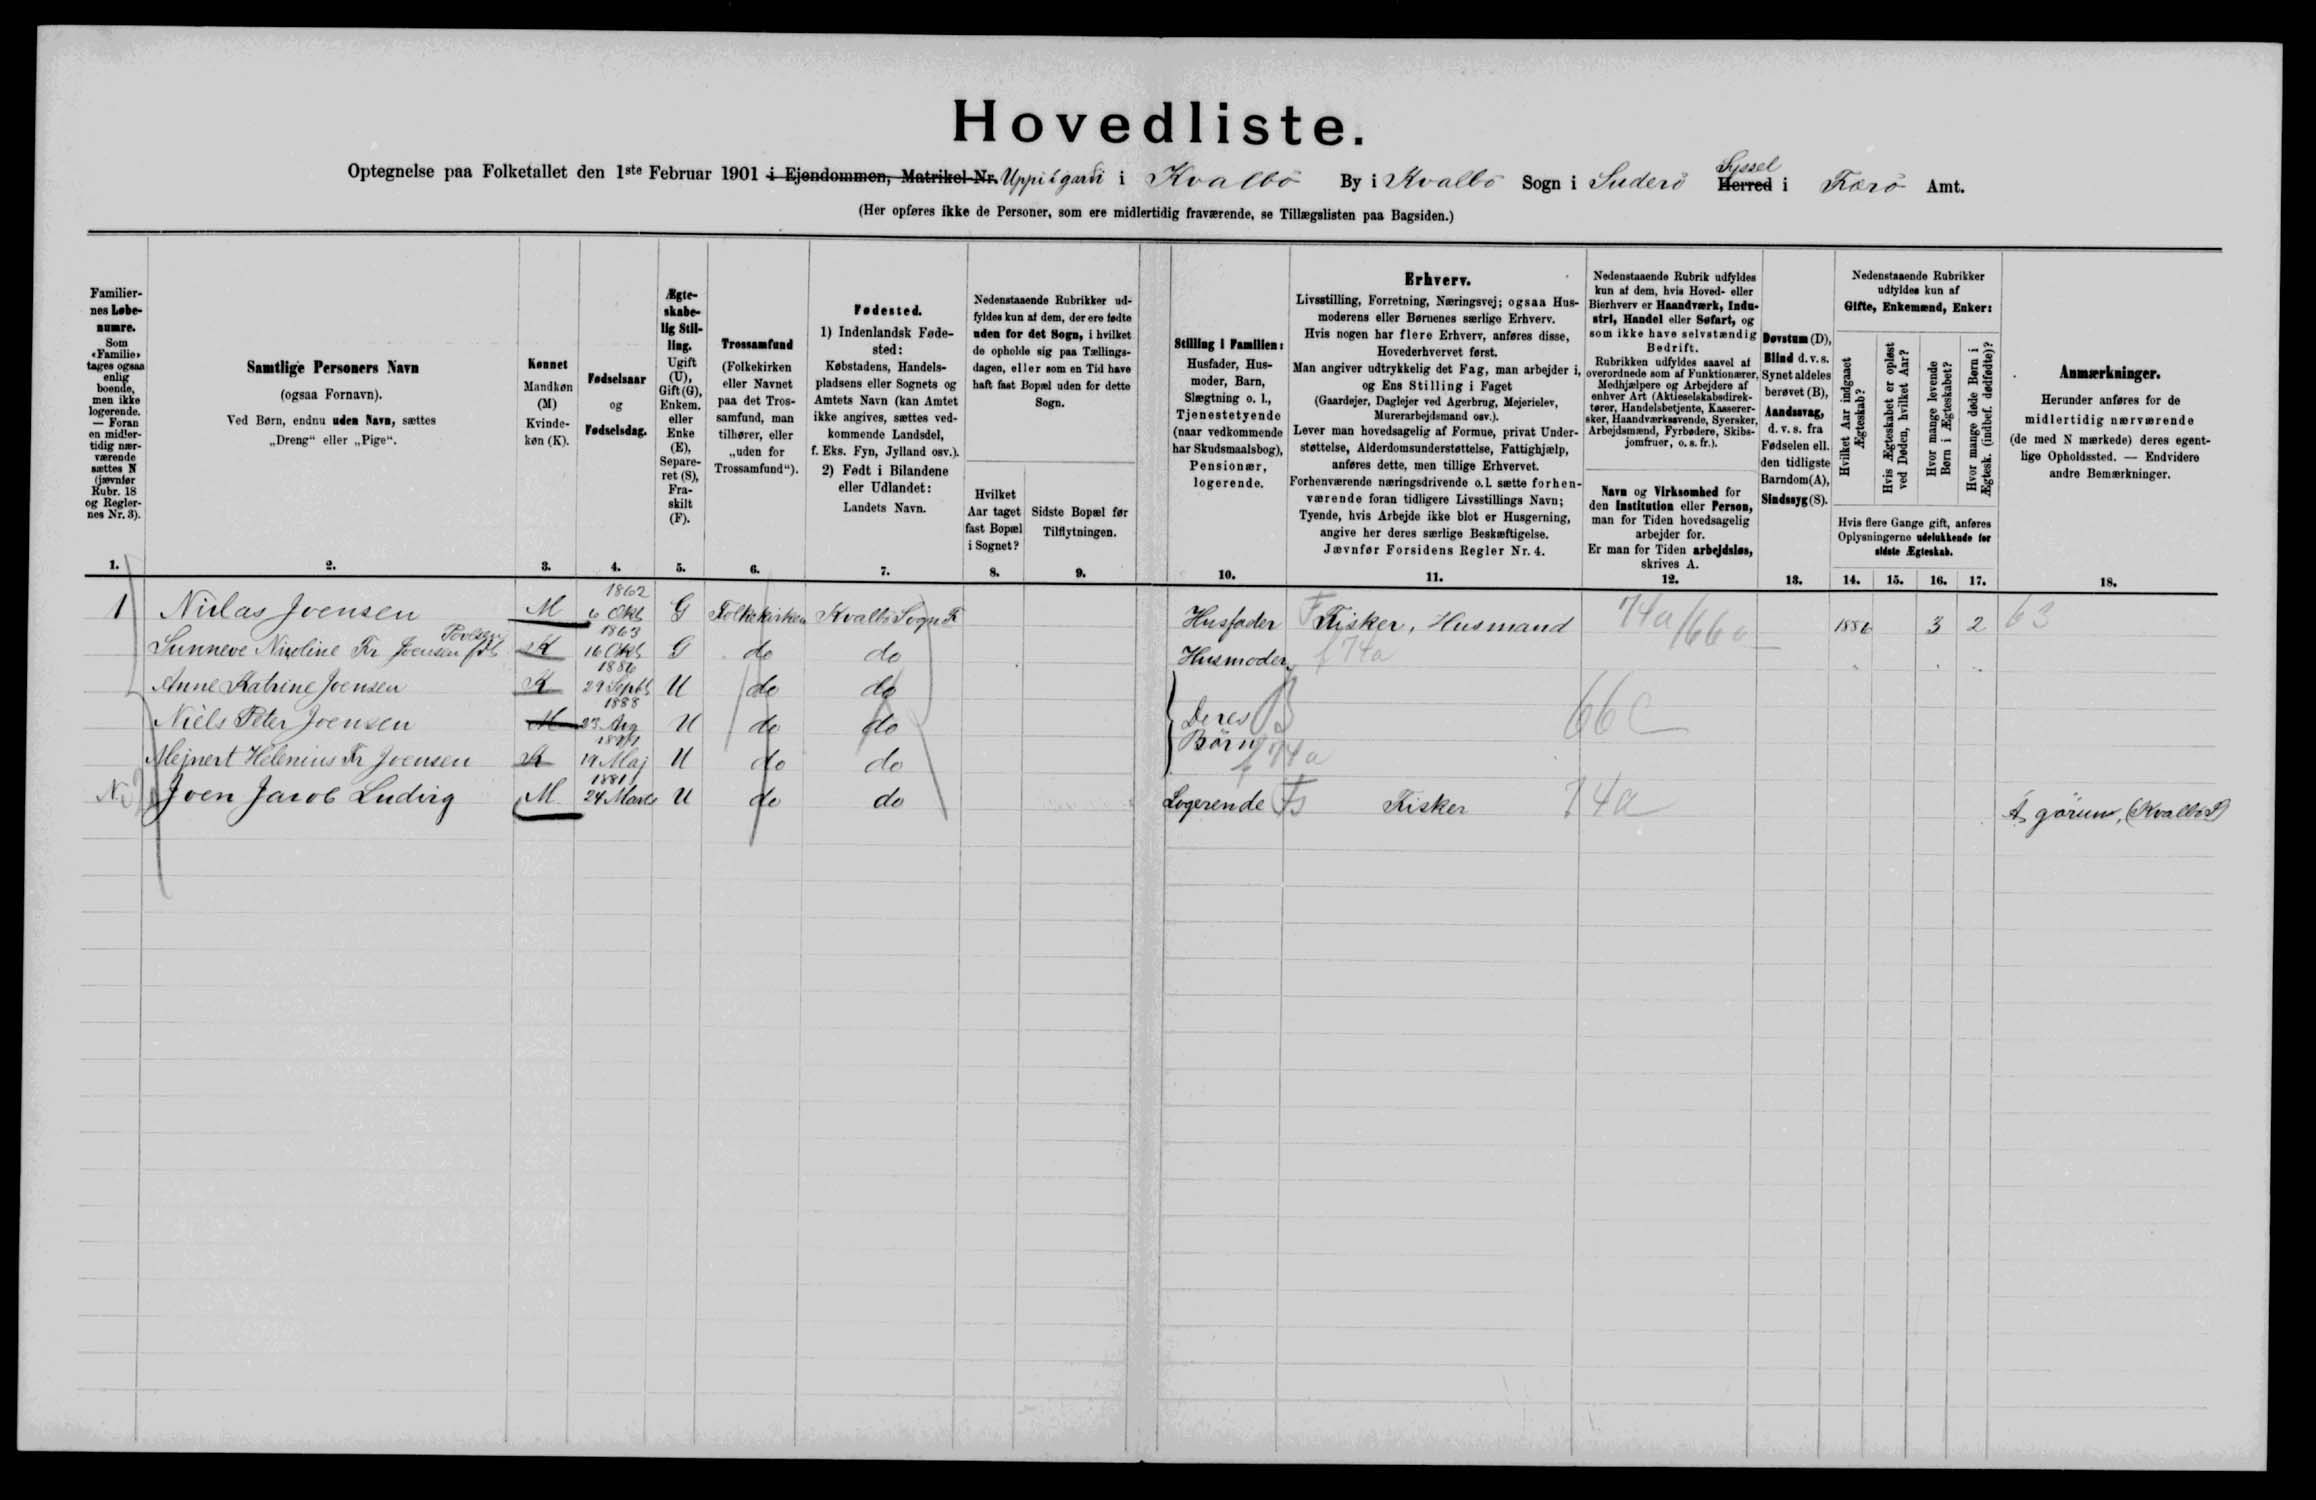 Hovedliste.
Optegnelse paa Folketallet den 1ste Februar 1901 i Ejendommen, Matrikel-Nr. Uppi í garði i Kvalbö By i Kvalbö Sogn i Suderö Syssel Herred i Færö Amt.
(Her opføres ikke de Personer, som ere midlertidig fraværende, se Tillægslisten paa Bagsiden.)
Familier-
nes Løbe-
numre.
Som
«Familie»
tages ogsaa
enlig
boende,
men ikke
logerende.
— Foran
en midler-
tidig nær-
værende
sættes N
(jævnfør
Rubr. 18
og Regler-
nes Nr. 3).
1.
Samtlige Personers Navn
(ogsaa Fornavn).
Ved Børn, endnu uden Navn, sættes
„Dreng“ eller „Pige“.
2.
Kønnet
Mandkøn
(M)
Kvinde-
køn (K).
3.
Fødselsaar
og
Fødselsdag.
4.
Ægte-
skabe-
lig Stil-
ling.
Ugift
(U),
Gift (G),
Enkem.
eller
Enke
(E),
Separe-
ret (S),
Fra-
skilt
(F).
5.
Trossamfund
(Folkekirken
eller Navnet
paa det Tros-
samfund, man
tilhører, eller
„uden for
Trossamfund“).
6.
Fødested.
1) Indenlandsk Føde-
sted:
Købstadens, Handels-
pladsens eller Sognets og
Amtets Navn (kan Amtet
ikke angives, sættes ved-
kommende Landsdel,
f. Eks. Fyn, Jylland osv.).
2) Født i Bilandene
eller Udlandet:
Landets Navn.
7.
Nedenstaaende Rubrikker ud-
fyldes kun af dem, der ere fødte
uden for det Sogn, i hvilket
de opholde sig paa Tællings-
dagen, eller som en Tid have
haft fast Bopæl uden for dette
Sogn.
Hvilket
Aar taget
fast Bopæl
i Sognet?
8.
Sidste Bopæl før
Tilflytningen.
9.
Stilling i Familien:
Husfader, Hus-
moder, Barn,
Slægtning o. l.,
Tjenestetyende
(naar vedkommende
har Skudsmaalsbog),
Pensionær,
logerende.
10.
Erhverv.
Livsstilling, Forretning, Næringsvej; ogsaa Hus-
moderens eller Børnenes særlige Erhverv.
Hvis nogen har flere Erhverv, anføres disse,
Hovederhvervet først.
Man angiver udtrykkelig det Fag, man arbejder i,
og Ens Stilling i Faget
(Gaardejer, Daglejer ved Agerbrug, Mejerielev,
Murerarbejdsmand osv.).
Lever man hovedsagelig af Formue, privat Under-
støttelse, Alderdomsunderstøttelse, Fattighjælp,
anføres dette, men tillige Erhvervet.
Forhenværende næringsdrivende o. l. sætte forhen-
værende foran tidligere Livsstillings Navn;
Tyende, hvis Arbejde ikke blot er Husgerning,
angive her deres særlige Beskæftigelse.
Jævnfør Forsidens Regler Nr. 4.
11.
Nedenstaaende Rubrik udfyldes
kun af dem, hvis Hoved- eller
Bierhverv er Haandværk, Indu-
stri, Handel eller Søfart, og
som ikke have selvstændig
Bedrift.
Rubrikken udfyldes saavel af
overordnede som af Funktionærer,
Medhjælpere og Arbejdere af
enhver Art (Aktieselskabsdirek-
tører, Handelsbetjente, Kasserer-
sker, Haandværkssvende, Syersker,
Arbejdsmænd, Fyrbødere, Skibs-
jomfruer, o. s. fr.).
Navn og Virksomhed for
den Institution eller Person,
man for Tiden hovedsagelig
arbejder for.
Er man for Tiden arbejdsløs,
skrives A.
12.
Døvstum (D),
Blind d. v. s.
Synet aldeles
berøvet (B),
Aandssvag,
d. v. s. fra
Fødselen ell.
den tidligste
Barndom (A),
Sindssyg (S).
13.
Nedenstaaende Rubrikker
udfyldes kun af
Gifte, Enkemænd, Enker:
Hvilket Aar indgaaet
Ægteskab?
Hvis Ægteskabet er opløst
ved Døden, hvilket Aar?
Hvor mange levende
Børn i Ægteskabet?
Hvor mange døde Børn i
Ægtesk. (indbef. dødfødte)?
Hvis flere Gange gift, anføres
Oplysningerne udelukkende for
sidste Ægteskab.
14. 15. 16. 17.
Anmærkninger.
Herunder anføres for de
midlertidig nærværende
(de med N mærkede) deres egent-
lige Opholdssted. — Endvidere
andre Bemærkninger.
18.
1 Niclas Joensen M 1862 6 Okt G Folkekirken Kvalbö Sogn F Husfader Fisker, Husmand 74a/66c 1886 3 2 63
Sunneve Nicoline Fr Joensen født Povlsen K 1863 16 Okt G do do Husmoder f 74a
Anne Katrine Joensen K 1886 29 Septb U do do
Niels Peter Joensen M 1888 23 Aug U do do Deres Børn B 66c
Mejnert Helenius Fr Joensen K 19 Maj U do do f 74a
N Joen Jacob Ludvig M 1881 24 Marts U do do Logerende Fs Fisker 74a Á görum, (Kvalbö S)